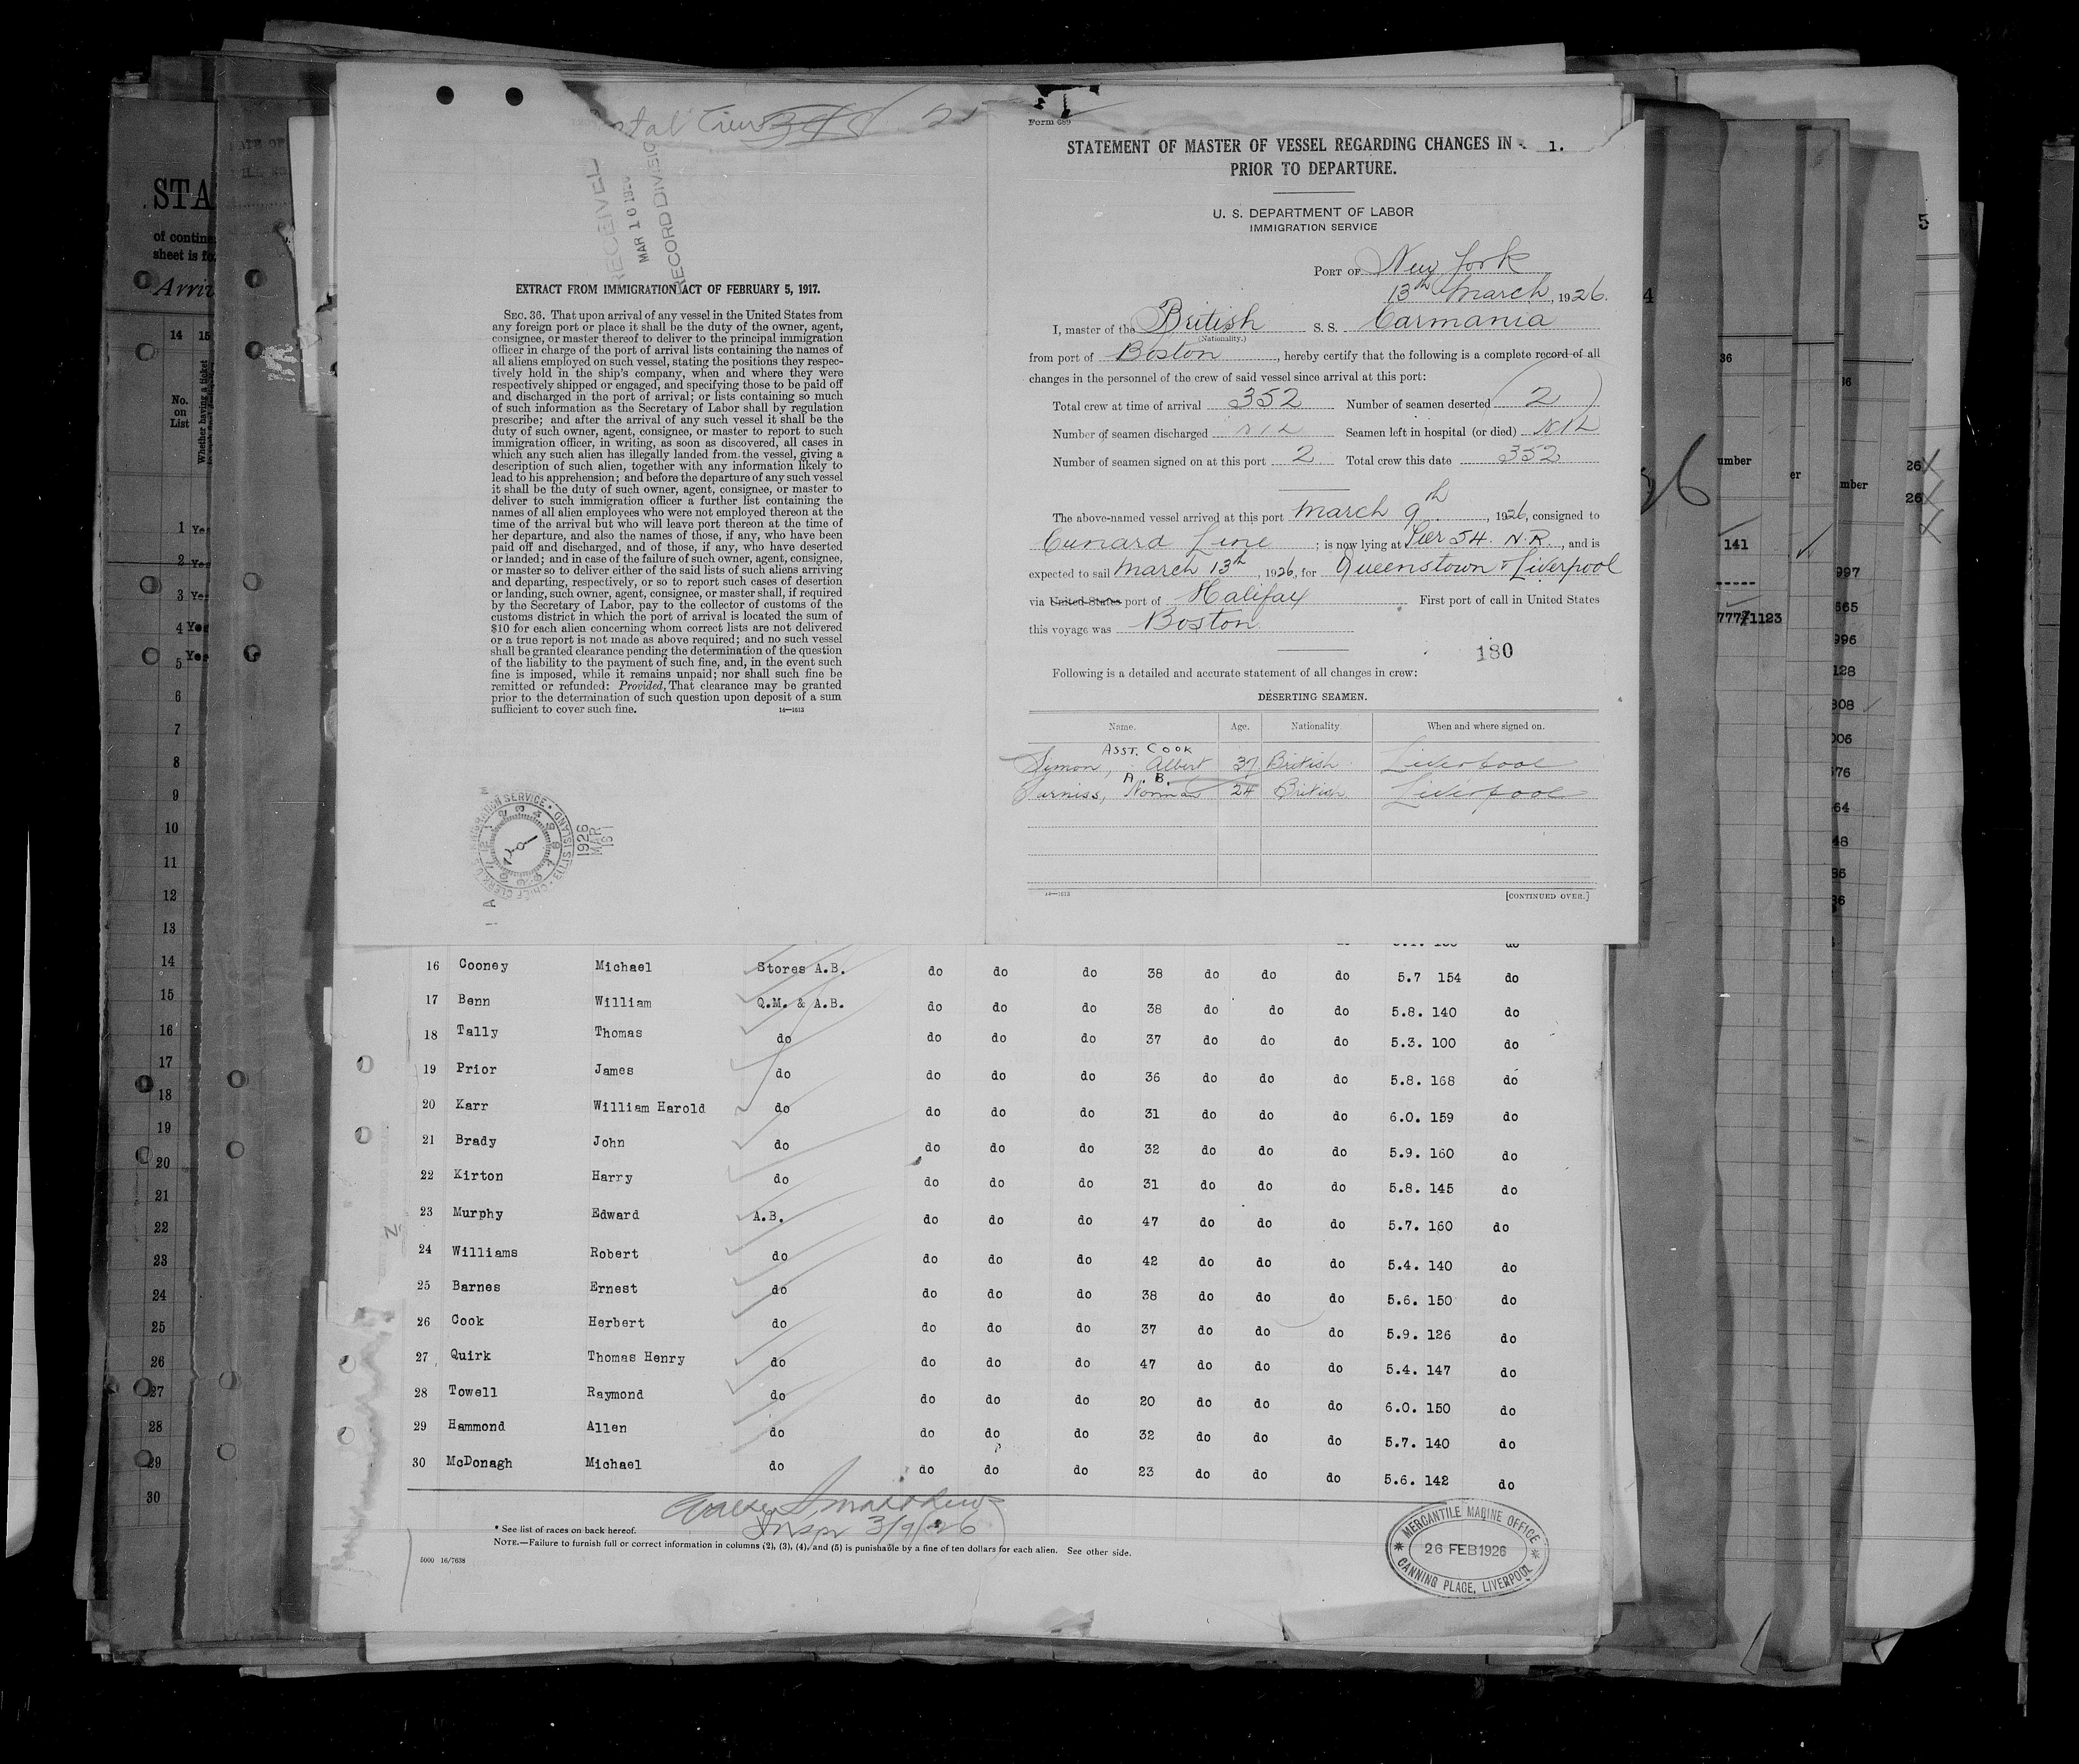 STA
of contine
sheet is fo
Arri
14 15
No.
on
List
Whether having a ticket
1 Yes
2 Yes
3 Yes
4 Yes
5 Yes
6
7
8
9
10
11
12
13
14
15
16
17
18
19
20
21
22
23
24
25
26
27
28
29
30
RECEIVED
MAR 10 192
RECORD DIVISIO
EXTRACT FROM IMMIGRATION ACT OF FEBRUARY 5, 1917.
SEC. 36. That upon arrival of any vessel in the United States from
any foreign port or place it shall be the duty of the owner, agent,
consignee, or master thereof to deliver to the principal immigration
officer in charge of the port of arrival lists containing the names of
all aliens employed on such vessel, stating the positions they respec-
tively hold in the ship's company, when and where they were
respectively shipped or engaged, and specifying those to be paid off
and discharged in the port of arrival; or lists containing so much
of such information as the Secretary of Labor shall by regulation
prescribe; and after the arrival of any such vessel it shall be the
duty of such owner, agent, consignee, or master to report to such
immigration officer, in writing, as soon as discovered, all cases in
which any such alien has illegally landed from the vessel, giving a
description of such alien, together with any information likely to
lead to his apprehension; and before the departure of any such vessel
it shall be the duty of such owner, agent, consignee, or master to
deliver to such immigration officer a further list containing the
names of all alien employees who were not employed thereon at the
time of the arrival but who will leave port thereon at the time of
her departure, and also the names of those, if any, who have been
paid off and discharged, and of those, if any, who have deserted
or landed; and in case of the failure of such owner, agent, consignee,
or master so to deliver either of the said lists of such aliens arriving
and departing, respectively, or so to report such cases of desertion
or landing, such owner, agent, consignee, or master shall, if required
by the Secretary of Labor, pay to the collector of customs of the
customs district in which the port of arrival is located the sum of
$10 for each alien concerning whom correct lists are not delivered
or a true report is not made as above required; and no such vessel
shall be granted clearance pending the determination of the question
of the liability to the payment of such fine, and, in the event such
fine is imposed, while it remains unpaid; nor shall such fine be
remitted or refunded: Provided, That clearance may be granted
prior to the determination of such question upon deposit of a sum
sufficient to cover such fine. 14—1613
1926
MAR
Form 689
STATEMENT OF MASTER OF VESSEL REGARDING CHANGES IN 1.
PRIOR TO DEPARTURE.
U. S. DEPARTMENT OF LABOR
IMMIGRATION SERVICE
PORT OF New York
13th March, 1926.
I, master of the British S. S. Carmania
(Nationality.)
from port of Boston, hereby certify that the following is a complete record of all
changes in the personnel of the crew of said vessel since arrival at this port:
Total crew at time of arrival 352 Number of seamen deserted 2
Number of seamen discharged NIL Seamen left in hospital (or died) NIL
Number of seamen signed on at this port 2 Total crew this date 352
The above-named vessel arrived at this port March 9th, 1926, consigned to
Cunard Line; is now lying at Pier 54. N.R., and is
expected to sail March 13th, 1926, for Queenstown & Liverpool
via United States port of Halifax First port of call in United States
this voyage was Boston
180
Following is a detailed and accurate statement of all changes in crew:
DESERTING SEAMEN.
Name. Age. Nationality. When and where signed on.
ASST. COOK
Symon, Albert 37 British Liverpool
A. B.
Furniss, Norman 24 British Liverpool
14—1613 [CONTINUED OVER.]
16 Cooney Michael Stores A.B. do do do 38 do do do 5.7 154 do
17 Benn William Q.M. & A.B. do do do 38 do do do 5.8. 140 do
18 Tally Thomas do do do do 37 do do do 5.3. 100 do
19 Prior James do do do do 36 do do do 5.8. 168 do
20 Karr William Harold do do do do 31 do do do 6.0. 159 do
21 Brady John do do do do 32 do do do 5.9. 160 do
22 Kirton Harry do do do do 31 do do do 5.8. 145 do
23 Murphy Edward A.B. do do do 47 do do do 5.7. 160 do
24 Williams Robert do do do do 42 do do do 5.4. 140 do
25 Barnes Ernest do do do do 38 do do do 5.6. 150 do
26 Cook Herbert do do do do 37 do do do 5.9. 126 do
27 Quirk Thomas Henry do do do do 47 do do do 5.4. 147 do
28 Towell Raymond do do do do 20 do do do 6.0. 150 do
29 Hammond Allen do do do do 32 do do do 5.7. 140 do
30 McDonagh Michael do do do do 23 do do do 5.6. 142 do
Inspr 3/9/26
* See list of races on back hereof.
NOTE.—Failure to furnish full or correct information in columns (2), (3), (4), and (5) is punishable by a fine of ten dollars for each alien. See other side.
5000 16/7638
MERCANTILE MARINE OFFICE
26 FEB 1926
CANNING PLACE, LIVERPOOL
36
umber
141
7777/1123
er
mber
997
665
996
128
308
26
26
5